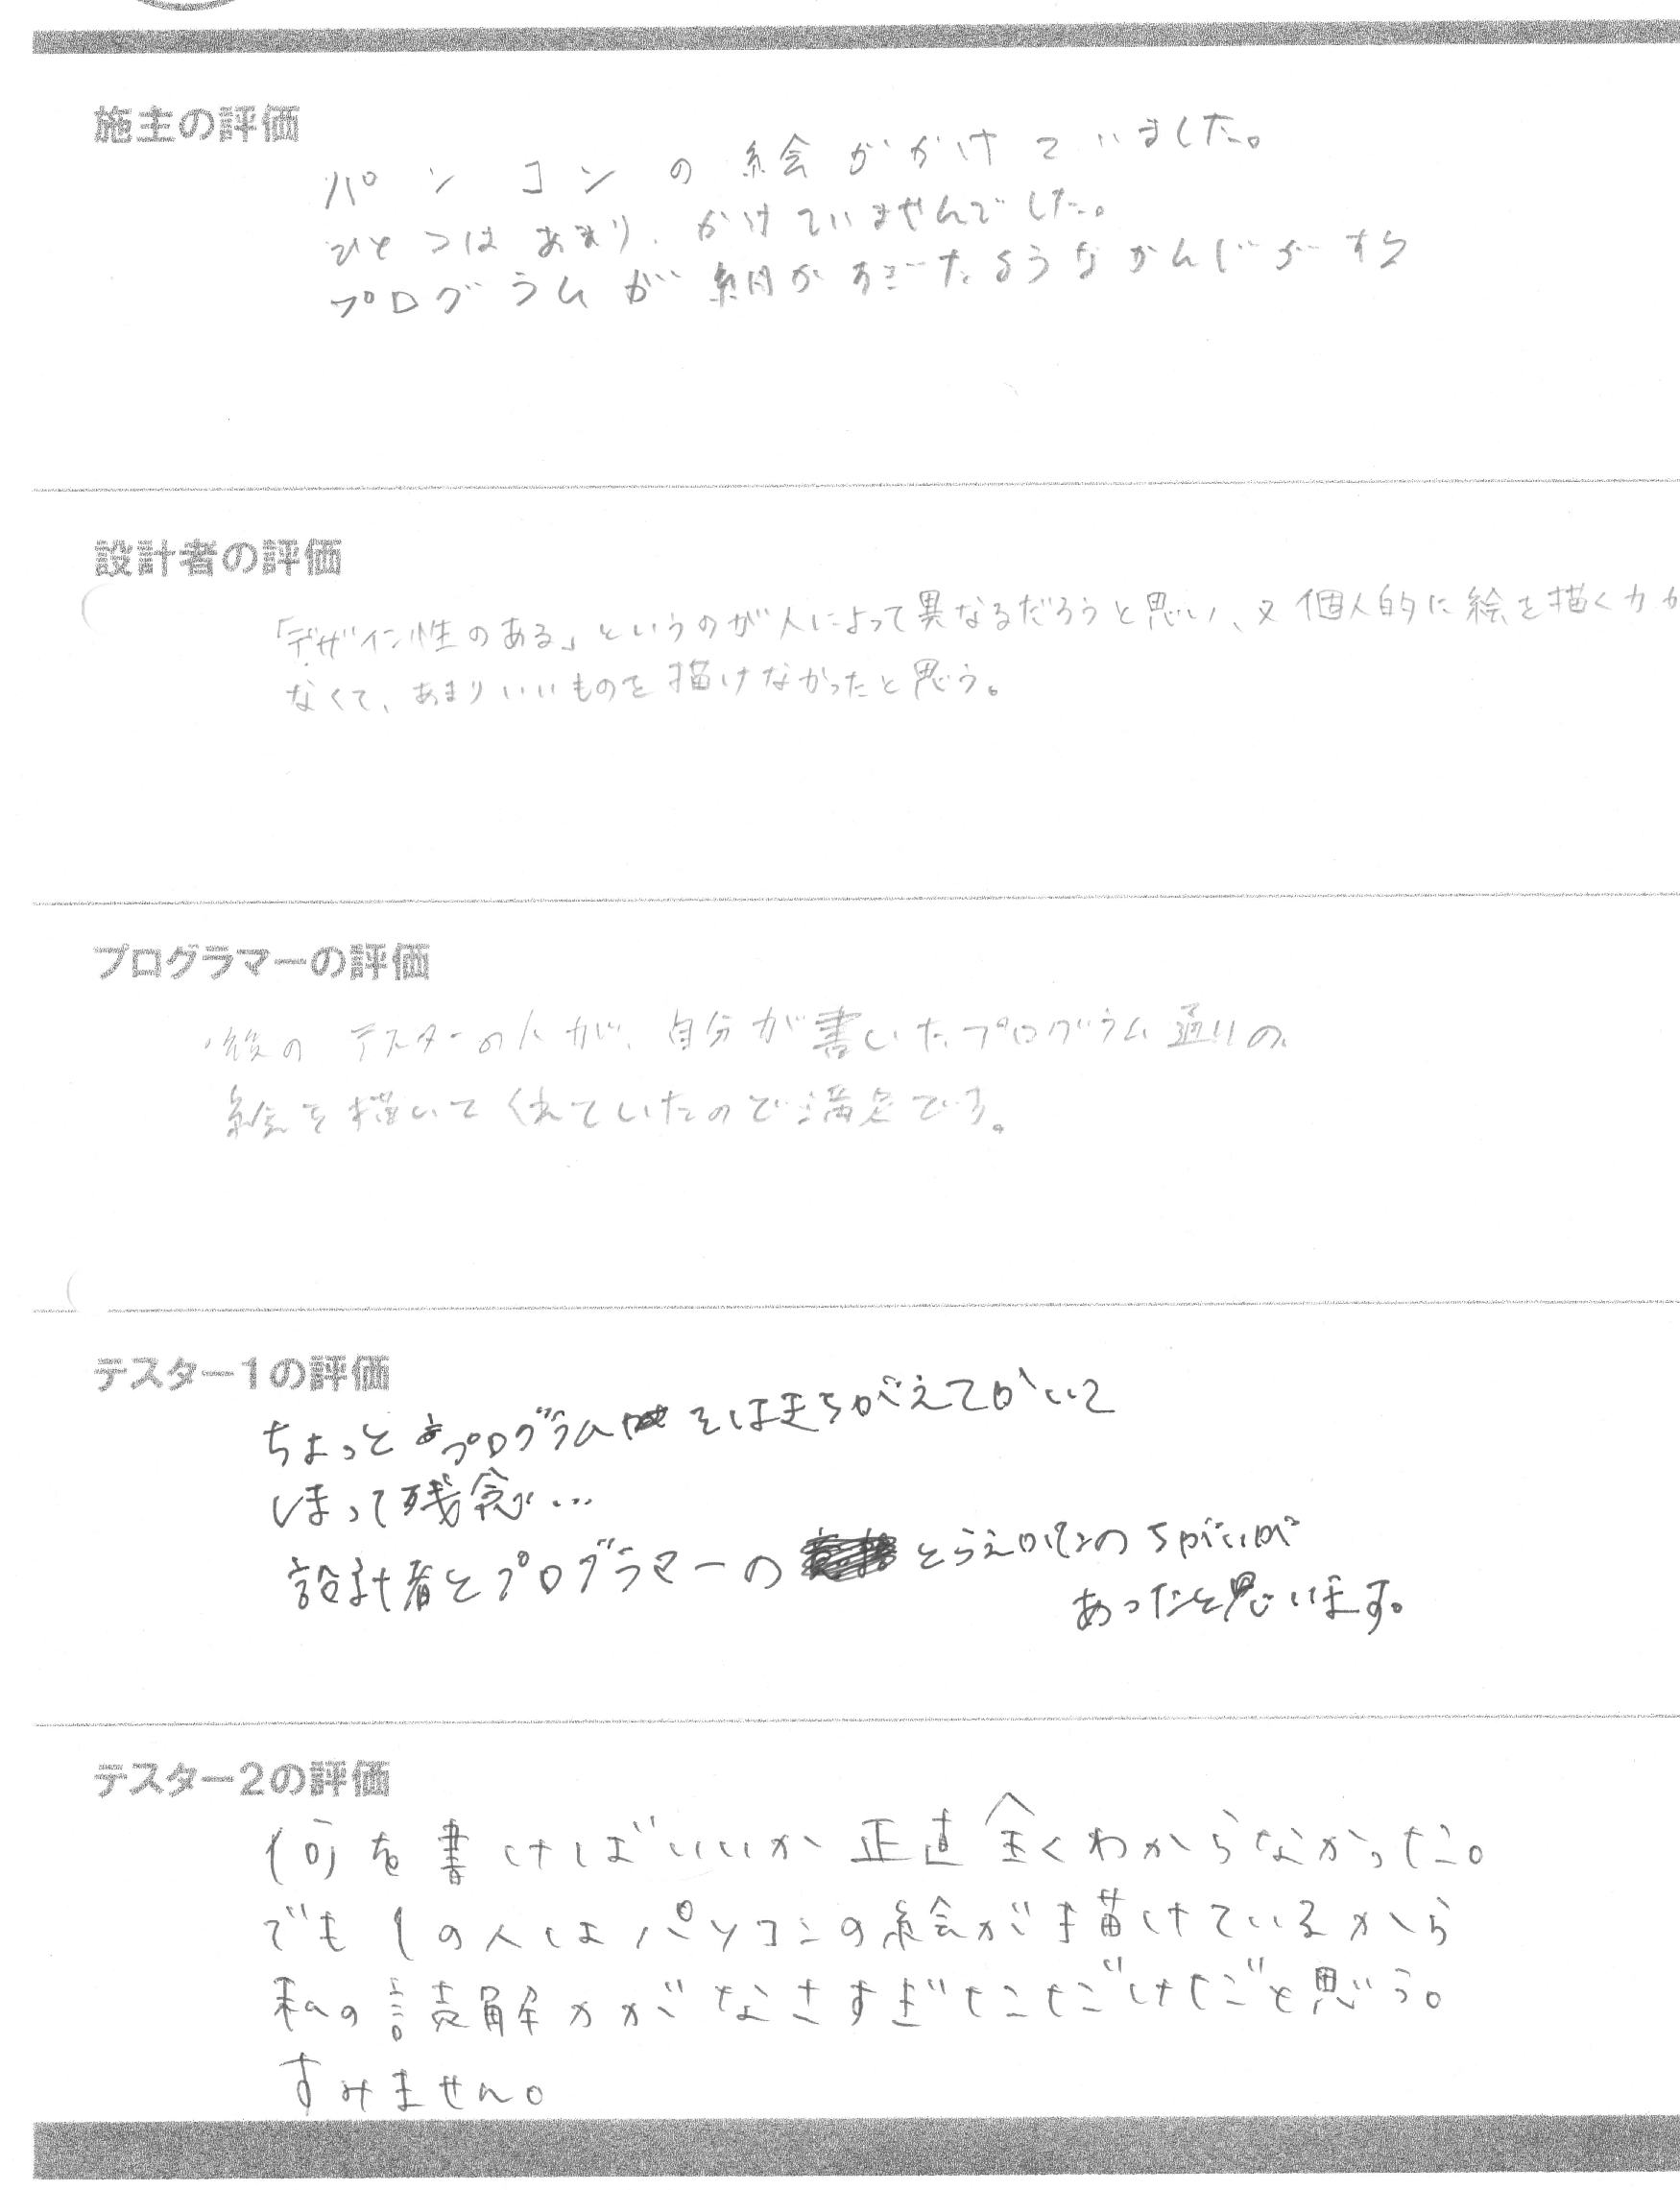 施主の評価
パソコンの絵がかけていました。
ひとつはあまり、かけていませんでした。
プログラムが細かすぎたようなかんじがする
設計者の評価
「デザイン性のある」というのが人によって異なるだろうと思い、又個人的に絵を描く力が
なくて、あまりいいものを描けなかったと思う。
プログラマーの評価
後のテスターの人が、自分が書いたプログラム通りの
絵を描いてくれていたので満足です。
テスター1の評価
ちょっとプログラム をはまちがえてかいて
しまって残念…
設計者とプログラマーの とらえかたのちがいが
あったと思います。
テスター2の評価
何を書けばいいか正直全くわからなかった。
でも1の人はパソコンの絵が描けているから
私の読解力がなさすぎただけだと思う。
すみません。